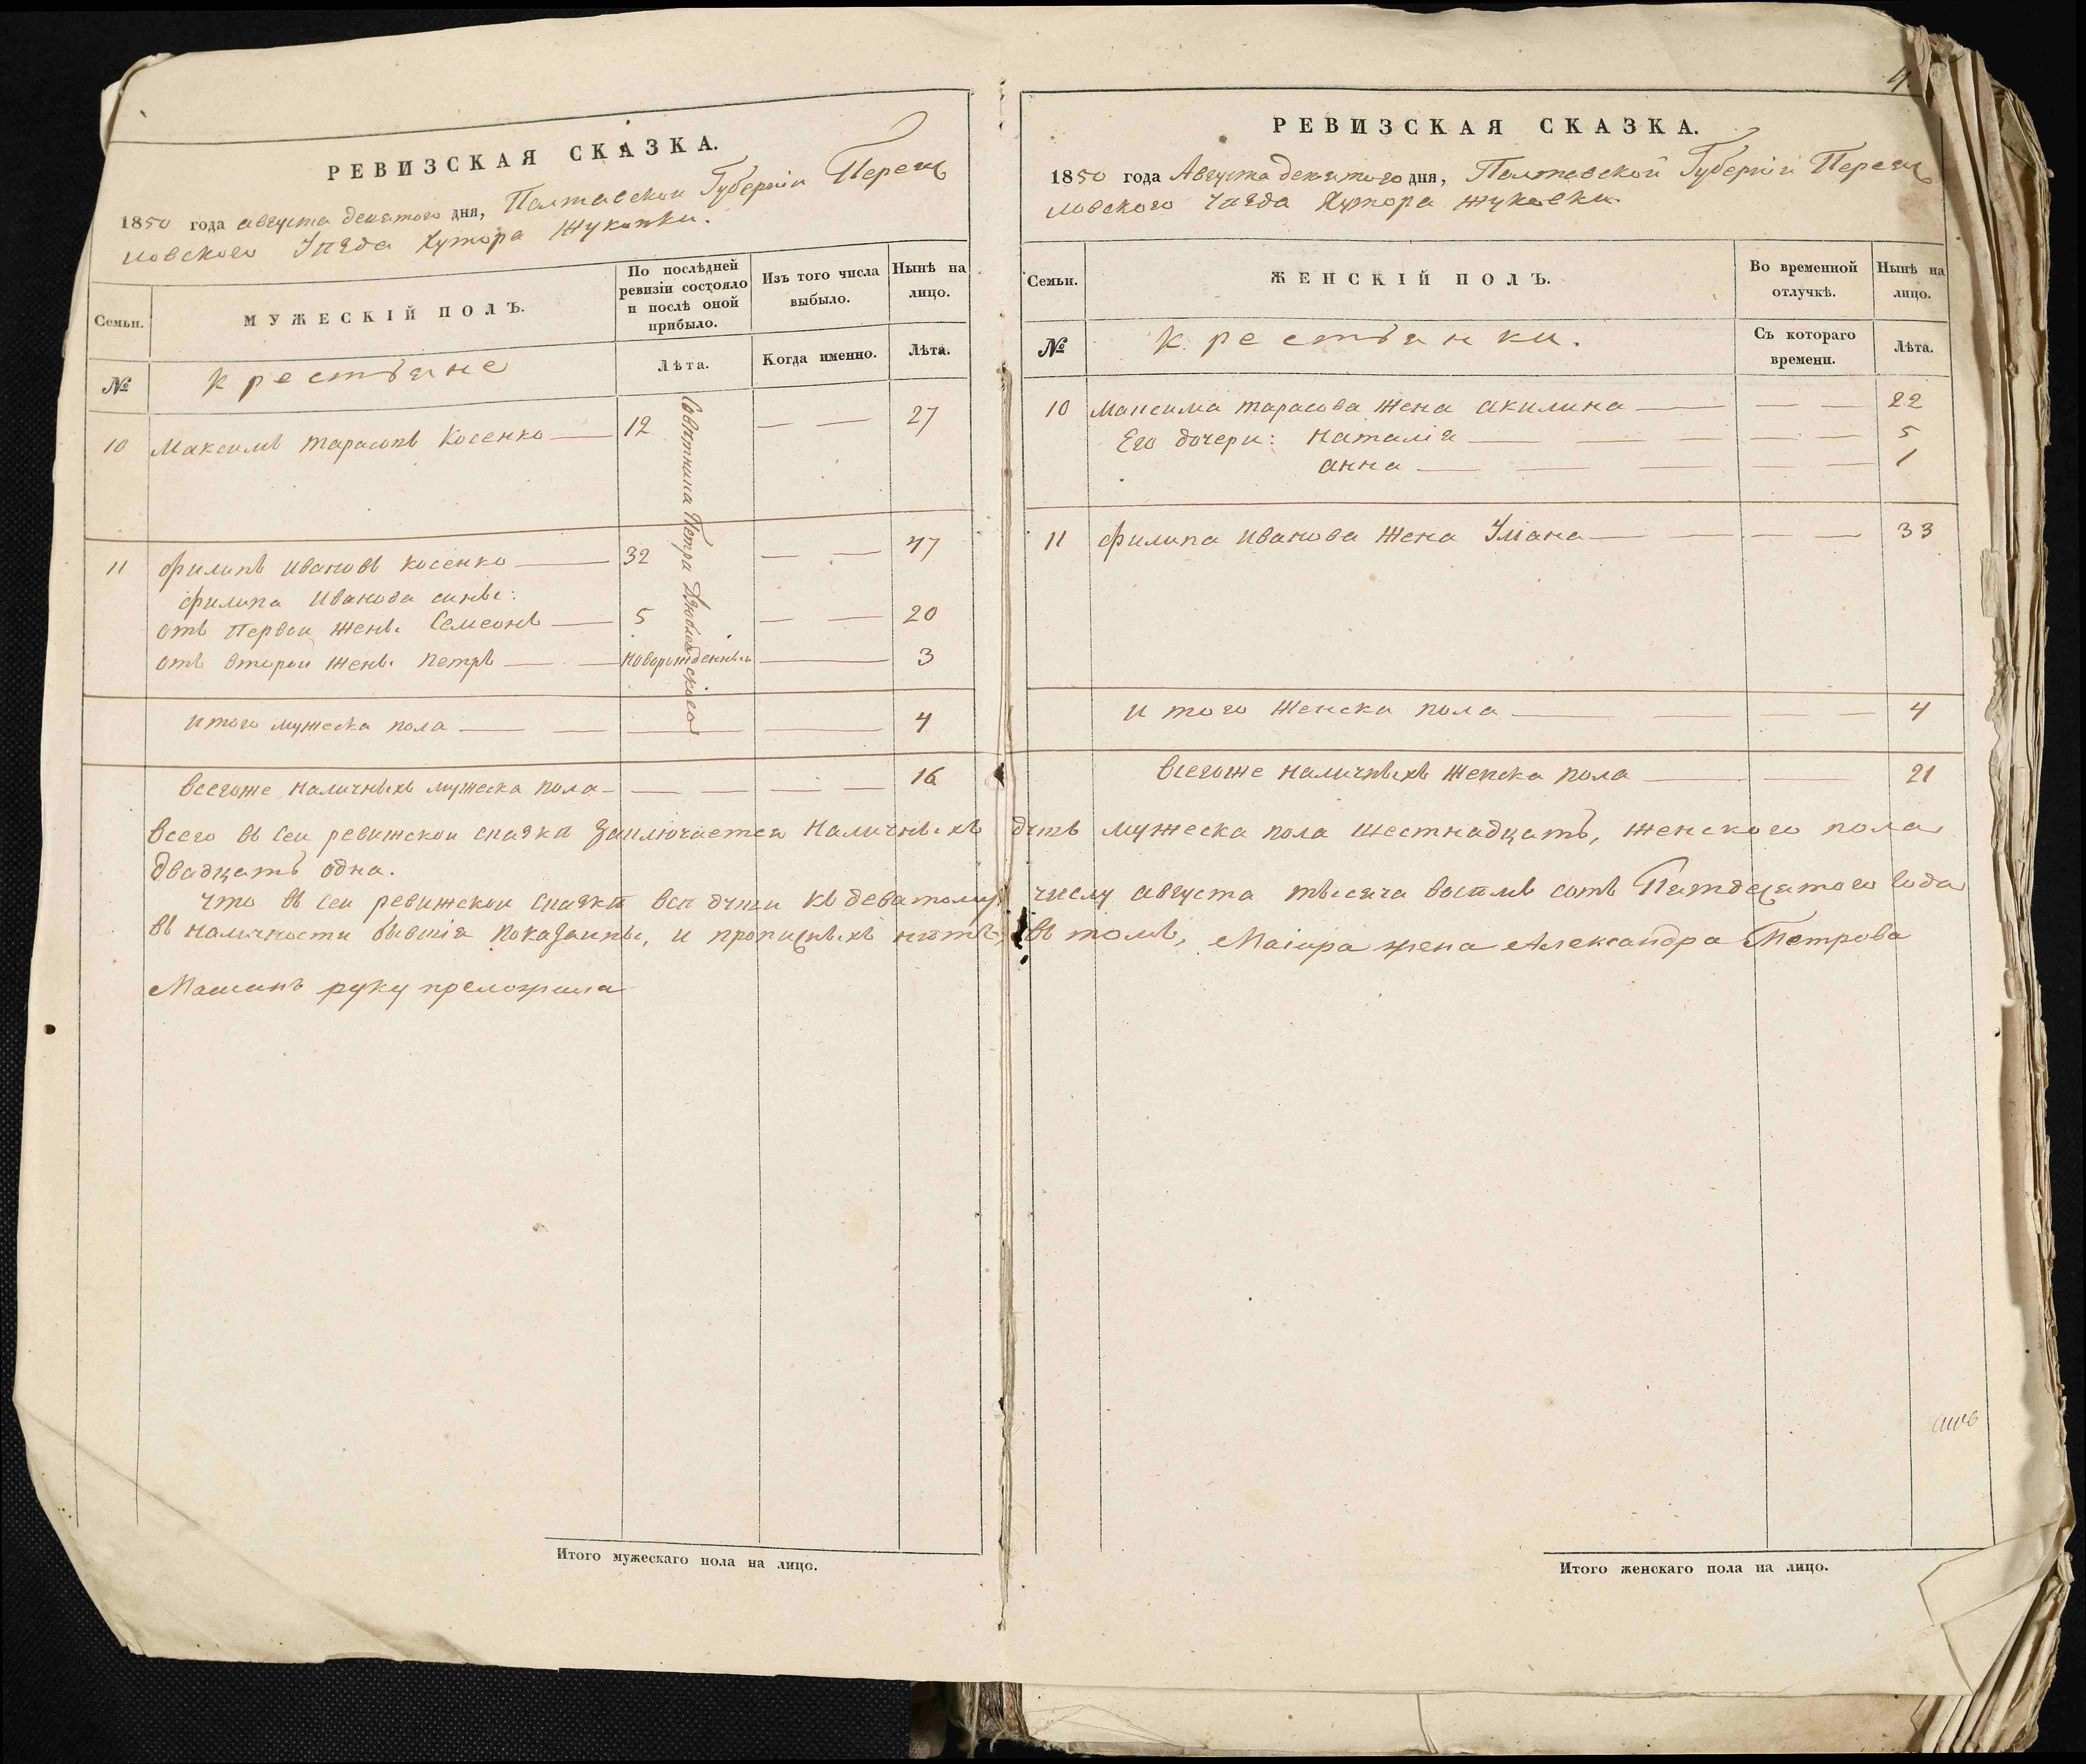 РЕВИЗСКАЯ СКАЗКА.
1850 года августа девятого дня, Полтавской Губерніи Переяс
ловского Уѣзда Хутора Жуковки.
Семьи.
МУЖЕСКІЙ ПОЛЪ.
По послѣдней ревизіи состояло и послѣ оной прибыло.
Изъ того числа выбыло.
Нынѣ на лицо.
№
крестьяне
Лѣта.
Когда именно.
Лѣта.
10 Максимъ тарасовъ Косенко 12 27
11 филипъ ивановъ косенко 32 47
филипа Иванова сины:
отъ первой жены Семеонъ 5 20
отъ второй жены петръ новорожденный 3
Совѣтника Петра
итого мужеска пола 4
всегоже наличныхъ мужеска пола 16
РЕВИЗСКАЯ СКАЗКА.
1850 года Августа девятого дня, Полтавской Губерніи Переяс
ловского Уѣзда Хутора жуковки.
Семьи.
ЖЕНСКІЙ ПОЛЪ.
Во временной отлучкѣ.
Нынѣ на лицо.
№
крестьянки.
Съ котораго времени.
Лѣта.
10 Максима тарасова жена акилина 22
Его дочери: наталія 5
анна 1
11 филипа иванова жена Уліана 33
итого женска пола 4
всегоже наличныхъ женска пола 21
всего въ сей ревижской сказкѣ заключается наличныхъ дѣшъ мужеска пола шестнадцать, женского пола
двадцать одна.
что въ сей ревижской сказкѣ всѣ дѣши къ девятому числу августа тысяча восемъ сотъ Пятдесятого года
въ наличности бывшія показанны, и прописныхъ нѣтъ, въ томъ, Маіора жена Александра Петрова
руку приложила
Итого мужескаго пола на лицо.
Итого женскаго пола на лицо.